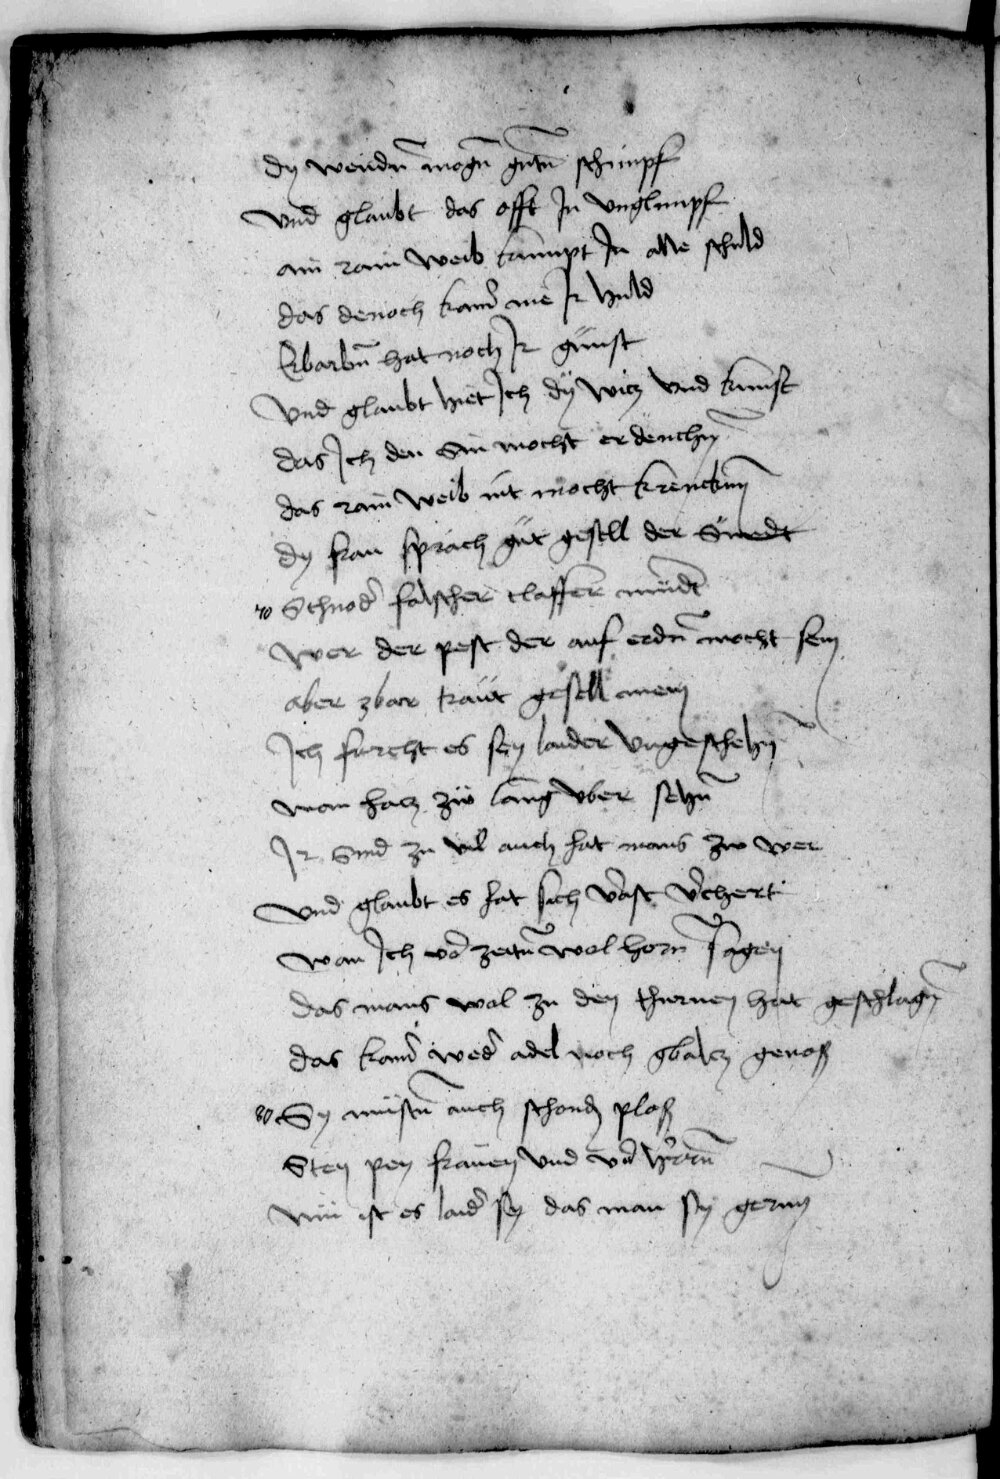 dy wendn̄ mogn̄ gutn̄ schimpf
Vnd glaubt das offt Jn vnglimpf
ain rain weib kumpt Jn alle schuld
das denoch kam̄ me Jr huld
Erbarbn̄ hat noch Jr gunst
Vnd glaubt hiet Jch dÿ witz Vnd kunst
das Jch den Sin mocht erdenchn̄
das rain weib nit mocht krenckn̄
dy frau sprach gut gesell der Smedt
70 Schnod̄ falscher claffer mund
wer der pest der auf erdn̄ mocht sein
aber zbar traut gesell mein
Jch furcht es sey laider Vngeschehn̄
man hatz zu lang vber sehn̄
Jr sind zu vil auch hat mans zw wer
Vnd glaubt es hat sich vast v̄chert
wan Jch vor zeitn̄ wol horn̄ sagen
das mans wol zu den thurnen hat geschlagn̄
das kain wed̄ adel noch gbaltz genoß
80 Sy mustn̄ auch schond ploß
Sten pey frauen Vnd vor herrn̄
nun ist es laid̄ sy das man sy gern